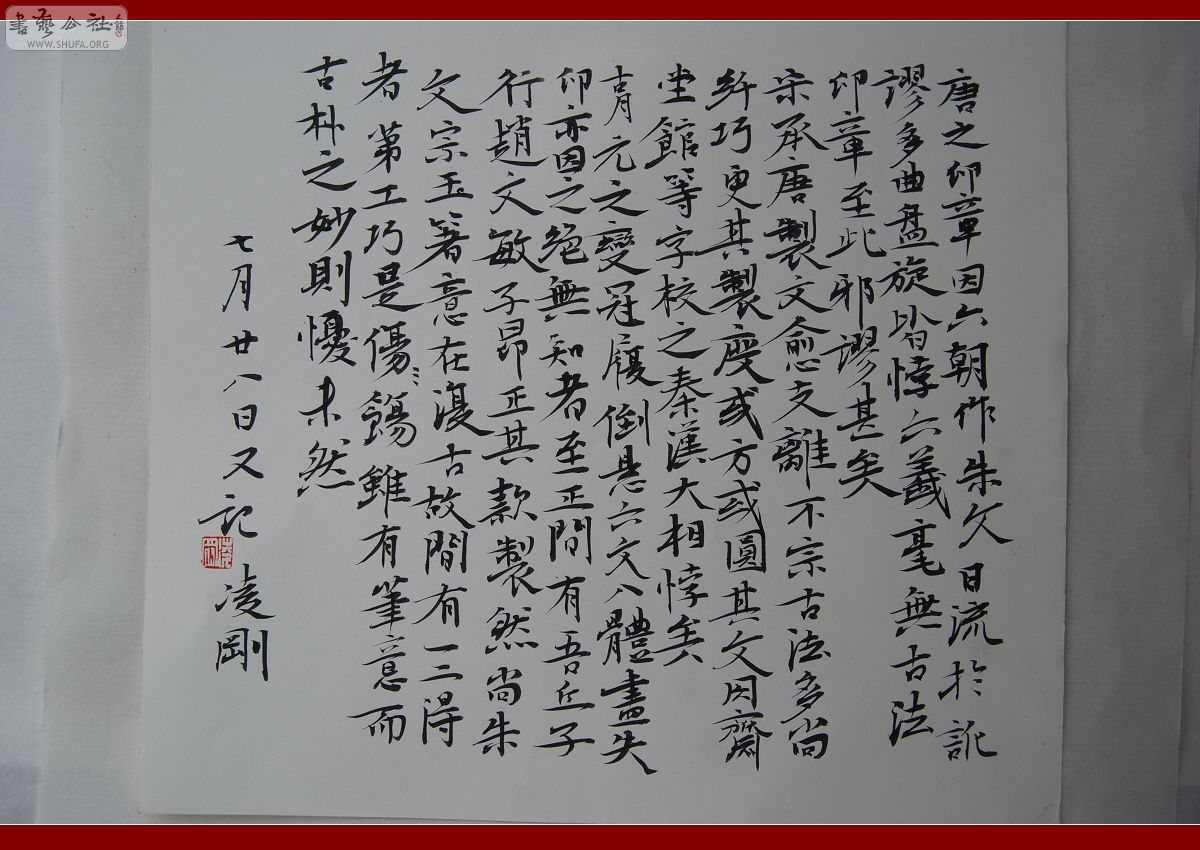 書藝公社
WWW.SHUFA.ORG
唐之印章因六朝作朱文日流於訛
謬多曲盤旋皆悖六義毫無古法
印章至此邪謬甚矣
宋承唐製文愈支離不宗古法多尚
纤巧更其製度或方或圓其文用齋
堂館等字校之秦漢大相悖矣
胡元之變冠履倒懸六文八體盡失
印亦因之絕無知者至正間有吾丘子
行趙文敏子昂正其款製然尚朱
文宗玉箸意在復古故間有一二得
者第工巧是傷雖有筆意而
古朴之妙則懮未然
七月廿八日又記 凌剛